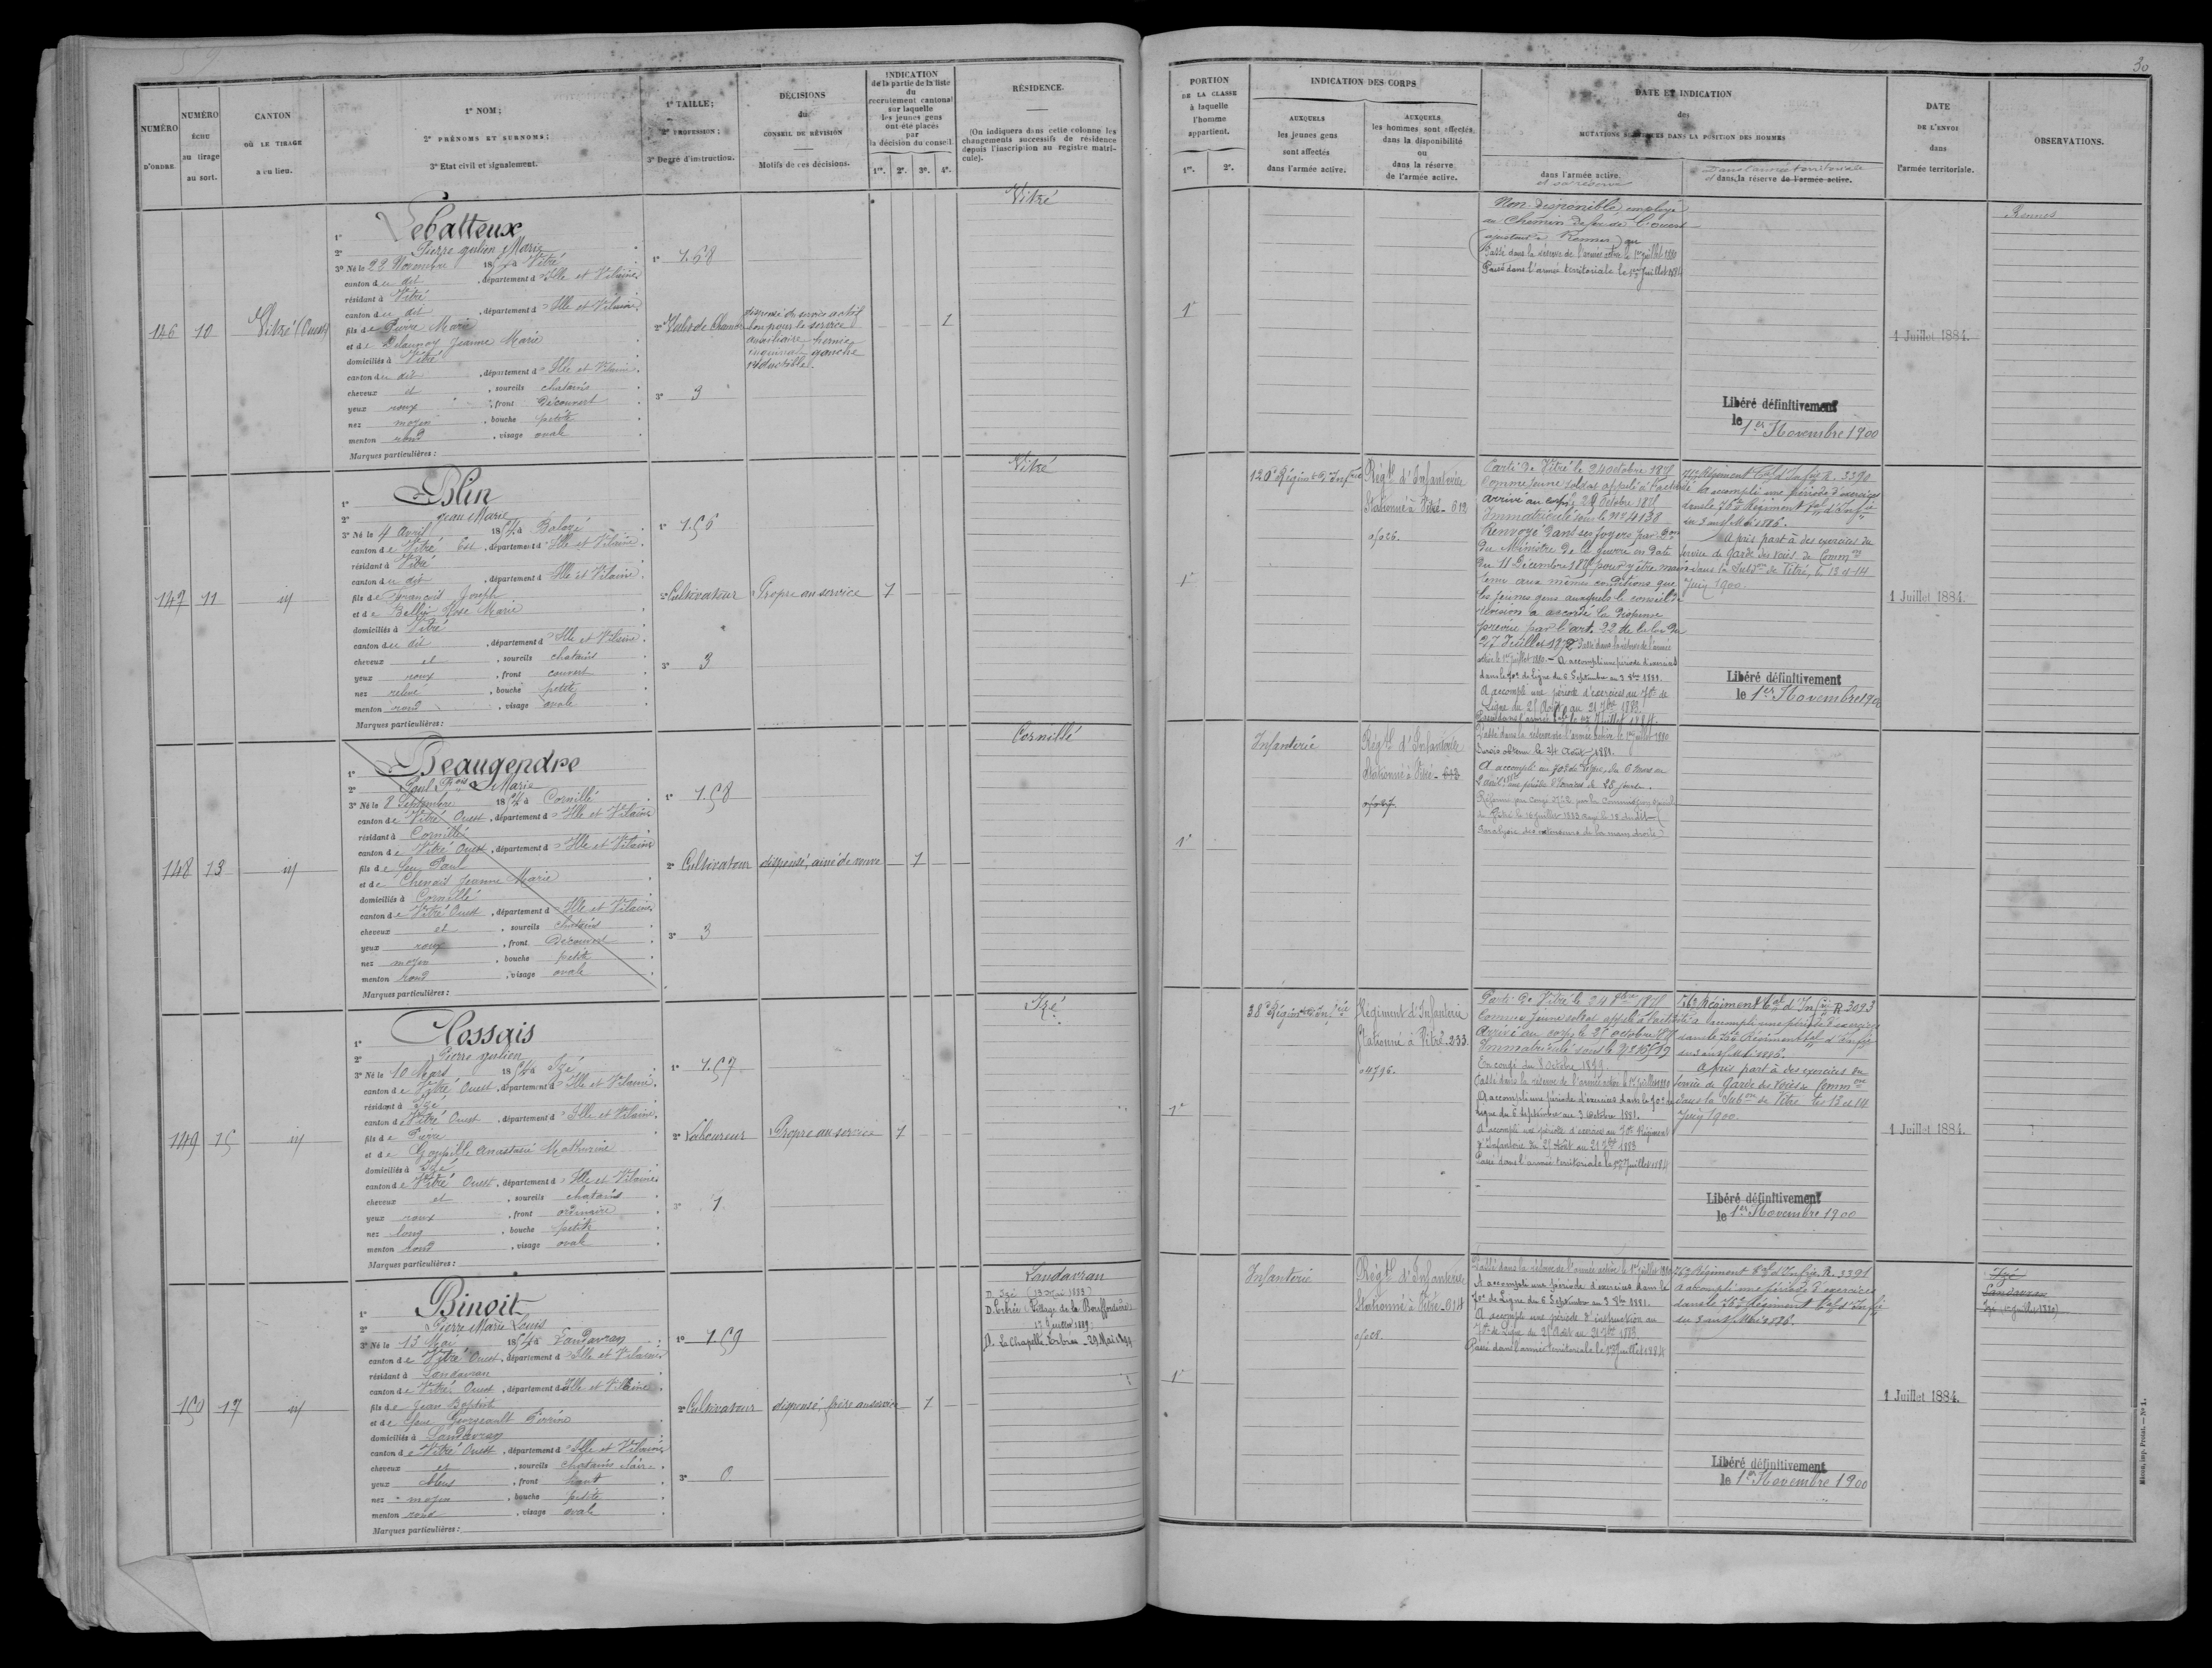 30
NUMÉRO
D'ORDRE.
NUMÉRO
ÉCHU
au tirage
au sort.
CANTON
OÙ LE TIRAGE
a eu lieu.
1° NOM;
2° PRÉNOMS ET SURNOMS;
3° Etat civil et signalement.
1° TAILLE;
2° PROFESSION;
3° Degré d'instruction.
DÉCISIONS
du
CONSEIL DE RÉVISION
Motifs de ces décisions.
INDICATION
de la partie de la liste
du
recrutement cantonal
sur laquelle
les jeunes gens
ont été placés
par
la décision du conseil.
1re. 2e. 3e. 4e.
RÉSIDENCE.
(On indiquera dans cette colonne les
changements successifs de résidence
depuis l'inscription au registre matri-
cule).
PORTION
DE LA CLASSE
à laquelle
l'homme
appartient.
1re. 2e.
INDICATION DES CORPS
AUXQUELS
les jeunes gens
sont affectés
dans l'armée active.
AUXQUELS
les hommes sont affectés
dans la disponibilité
ou
dans la réserve
de l'armée active.
DATE ET INDICATION
des
MUTATIONS DANS LA POSITION DES HOMMES
dans l'armée active.
et sa réserve
Dans l'armée territoriale
et dans la réserve de l'armée active.
DATE
DE L'ENVOI
dans
l'armée territoriale.
OBSERVATIONS.
146 10 Vitré (Ouest)
1° Lebatteux
2° Pierre Julien Marie
3° Né le 28 Novembre 18 à Vitré
canton du dit, département d'Ille et Vilaine
résidant à Vitré
canton du dit, département d'Ille et Vilaine
fils de Pierre Marie
et de Delaunay Jeanne Marie
domiciliés à Vitré
canton du dit, département d'Ille et Vilaine
cheveux et, sourcils chatains
yeux roux, front découvert
nez moyen, bouche petite
menton rond, visage ovale
Marques particulières:
1° 1.58
2° Valet de Chambre
3° 3
dispensé du service actif
bon pour le service
auxiliaire hernie
inguinale gauche
réductible.
1
Vitré
1e
Non disponible employé
au Chemin de fer de l'Ouest
ajusteur à Rennes
Passé dans la réserve de l'armée active le 1er juillet 1880
Passé dans l'armée territoriale le 1er Juillet 1884
Libéré définitivement
le 1er Novembre 1900
1 Juillet 1884.
Rennes
147 11 id
1° Blin
2° Jean Marie
3° Né le 4 Avril 1854 à Balazé
canton de Vitré Est, département d'Ille et Vilaine
résidant à Vitré
canton du dit, département d'Ille et Vilaine
fils de François Joseph
et de Bellier Rose Marie
domiciliés à Vitré
canton du dit, département d'Ille et Vilaine
cheveux et, sourcils chatains
yeux roux, front couvert
nez relevé, bouche petite
menton rond, visage ovale
Marques particulières:
1° 1.56
2° Cultivateur
3° 3
Propre au service
1
Vitré
1e
120e Régiment d'Infrie
Régt d'Infanterie
Stationné à Vitré - 612
Parti de Vitré le 24 octobre 1875
Comme jeune soldat appelé à l'activité
arrivé au corps le 28 octobre 1875
Immatriculé sous le No 4138
Renvoyé dans ses foyers par Don
du Ministre de la guerre en date
du 11 Décembre 1875 pour y être main
tenu aux mêmes conditions que
les jeunes gens auxquels le conseil de
révision a accordé la dispense
prévue par l'art. 22 de la loi du
27 Juillet 1872 Passé dans la réserve de l'armée
active le 1er juillet 1880 - A accompli une période d'exercices
dans le 70e de Ligne du 6 Septembre au 3 8bre 1881.
A accompli une période d'exercices au 70e de
Ligne du 25 Août au 21 7bre 1883
Passé dans l'armée tle le 1er Juillet 1884.
76e Régiment tal d'Infrie R. 3390
A accompli une période d'exercices
dans le 76e Régiment tal d'Infrie
du 3 au 15 Mai 1886.
A pris part à des exercices du
service de garde des voies de Common
dans la Subdon de Vitré, le 13 et 14
Juin 1900.
Libéré définitivement
le 1er Novembre 1900
1 Juillet 1884.
148 13 id
1° Beaugendre
2° Paul Marie
3° Né le 2 Septembre 1854 à Cornillé
canton de Vitré Ouest, département d'Ille et Vilaine
résidant à Cornillé
canton de Vitré Ouest, département d'Ille et Vilaine
fils de feu Paul
et de Chenais Jeanne Marie
domiciliés à Cornillé
canton de Vitré Ouest, département d'Ille et Vilaine
cheveux et, sourcils chatains
yeux roux, front Découvert
nez moyen, bouche petite
menton rond, visage ovale
Marques particulières:
1° 1.58
2° Cultivateur
3° 3
dispensé, ainé de veuve
1
Cornillé
1e
Infanterie
Régt d'Infanterie
Stationné à Vitré - 613
Passé dans la réserve de l'armée active le 1er juillet 1880
Sursis obtenu le 24 Août 1881.
A accompli au 70e de ligne, du 6 mars au
2 avril une période d'exercices de 28 jours.
Réformé par congé No 2 par la Commission spéciale
de Vitré le 16 juillet 1883
149 15 id
1° Hossais
2° Pierre Julien
3° Né le 10 Mars 1854 à Izé
canton de Vitré Ouest, département d'Ille et Vilaine
résidant à Izé
canton de Vitré Ouest, département d'Ille et Vilaine
fils de Pierre
et de Goupille Anastasie Mathurine
domiciliés à Izé
canton de Vitré Ouest, département d'Ille et Vilaine
cheveux et, sourcils chatains
yeux roux, front ordinaire
nez long, bouche petite
menton rond, visage ovale
Marques particulières:
1° 1.57
2° Laboureur
3° 1
Propre au service
1
Izé
1e
38e Régiment d'Infrie
Régiment d'Infanterie
Stationné à Vitré - 233
Parti de Vitré le 24 8bre 1875
Comme jeune soldat appelé à l'activité
Arrivé au corps le 25 octobre 1875
Immatriculé sous le No
En congé du 8 octobre 1879
Passé dans la réserve de l'armée active le 1er juillet 1880
A accompli une période d'exercices dans le 70e de
Ligne du 6 Septembre au 3 Octobre 1881.
A accompli une période d'exercices au 70e Régiment
d'Infanterie du 25 Août au 21 7bre 1883
Passé dans l'armée territoriale le 1er Juillet 1884
76e Régiment tal d'Infrie R 3093
A accompli une période d'exercices
dans le 76e Régiment tal d'Infrie
du 3 au 15 Mai 1886.
A pris part à des exercices du
service de garde des voies de Common
dans la Subon de Vitré les 13 et 14
Juin 1900
Libéré définitivement
le 1er Novembre 1900
1 Juillet 1884.
150 17 id
1° Binoit
2° Pierre Marie Louis
3° Né le 13 Mai 1854 à Landavran
canton de Vitré Ouest, département d'Ille et Vilaine
résidant à Landavran
canton de Vitré Ouest, département d'Ille et Vilaine
fils de Jean Baptiste
et de feue Perrine
domiciliés à Landavran
canton de Vitré Ouest, département d'Ille et Vilaine
cheveux et, sourcils chatains clairs
yeux bleus, front haut
nez moyen, bouche petite
menton rond, visage ovale
Marques particulières:
1° 1.59
2° Cultivateur
3° 0
dispensé, frère au service
1
Landavran
D. Izé (13 Mai 1883)
D. Erbrée (Village de la
17 Juillet 1889
D. La Chapelle Erbrée - 29 Mai 1894
1e
Infanterie
Régt d'Infanterie
Stationné à Vitré - 614
Passé dans la réserve de l'armée active le 1er juillet 1880
A accompli une période d'exercices dans le
70e de Ligne du 6 Septembre au 3 8bre 1881.
A accompli une période d'instruction au
70e de Ligne du 25 Août au 21 7bre 1883.
Passé dans l'armée territoriale le 1er Juillet 1884
76e Régiment tal d'Infrie R. 3391
A accompli une période d'exercices
dans le 76e Régiment tal d'Infrie
du 3 au 15 Mai 1886.
Libéré définitivement
le 1er Novembre 1900
1 Juillet 1884.
Izé
Landavran
Macon, imp. Protat. — No 1.